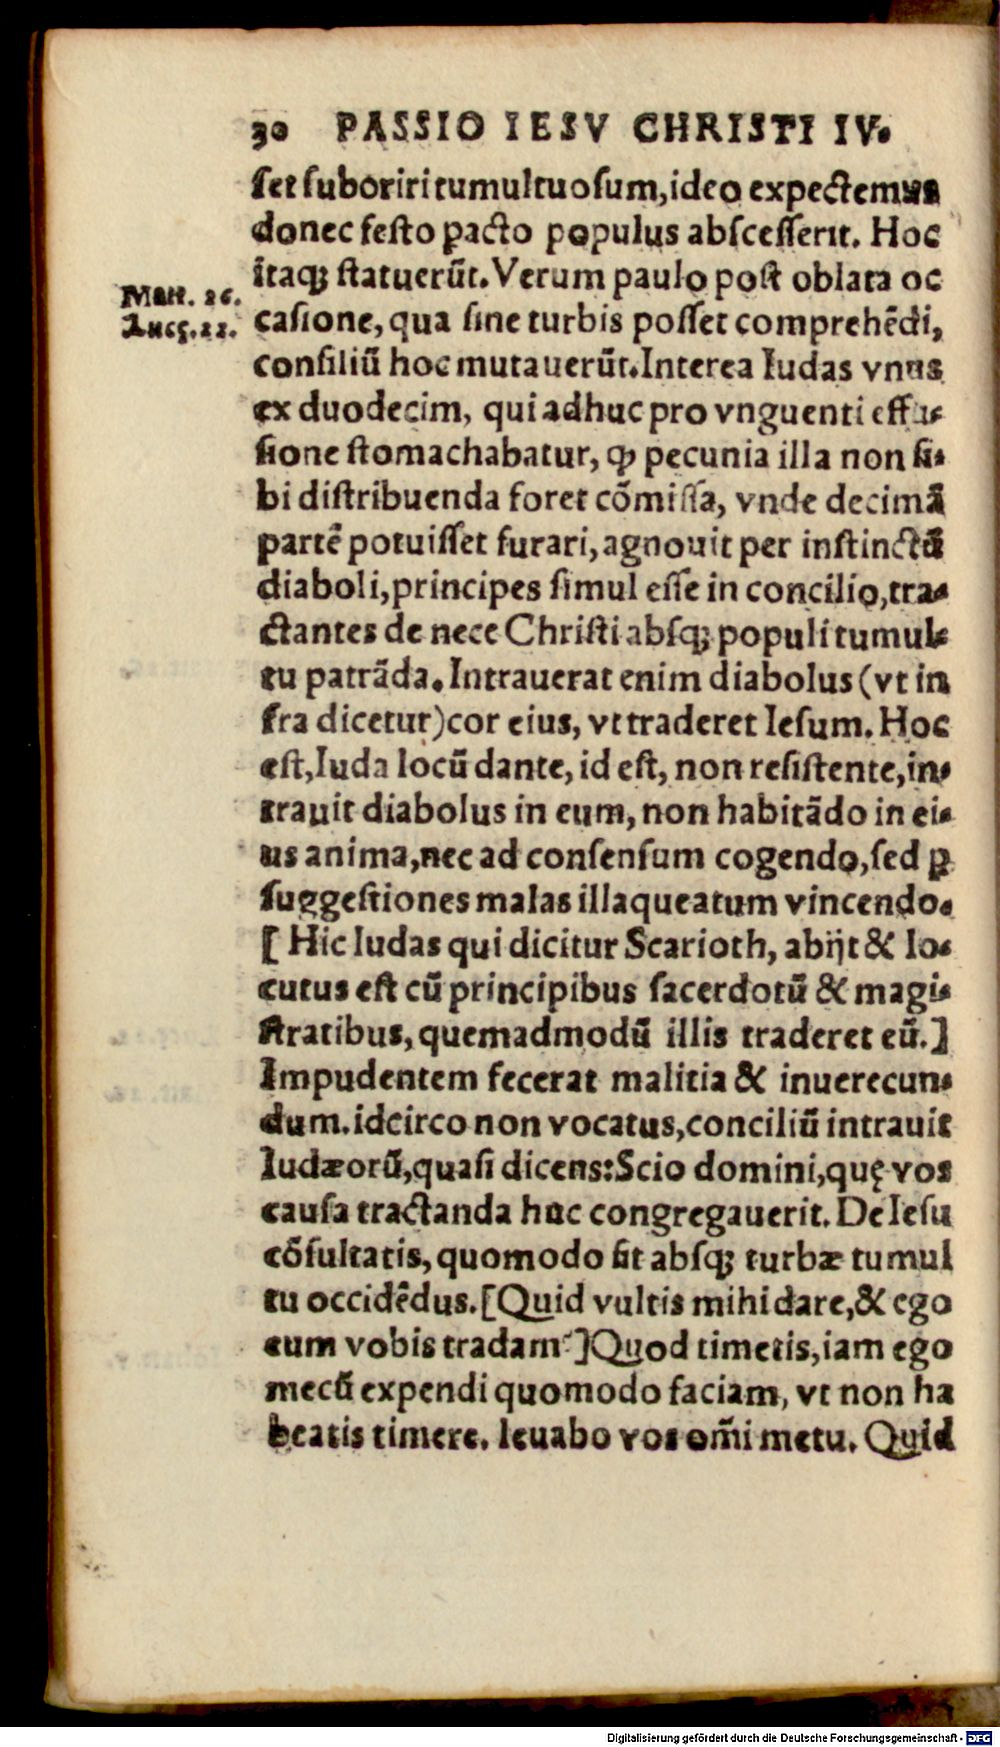 30 PASSIO IESV CHRISTI IV.
ſet ſuboriri tumultuoſum, ideo expectemus
donec feſto pacto populus abſceſſerit. Hoc
itaqꝫ ſtatuerũt. Verum paulo poſt oblata oc
Matt. 26.
Lucę. 22.
caſione, qua ſine turbis poſſet comprehẽdi,
conſiliũ hoc mutauerũt. Interea Iudas vnus
ex duodecim, qui adhuc pro vnguenti effu-
ſione ſtomachabatur, ꝙ pecunia illa non ſi-
bi diſtribuenda foret cõmiſſa, vnde decimã
partẽ potuiſſet furari, agnouit per inſtinctũ
diaboli, principes ſimul eſſe in concilio, tra-
ctantes de nece Chriſti abſqꝫ populi tumul-
tu patrãda. Intrauerat enim diabolus (vt in
fra dicetur) cor eius, vt traderet Ieſum. Hoc
eſt, Iuda locũ dante, id eſt, non reſiſtente, in-
trauit diabolus in eum, non habitãdo in ei-
us anima, nec ad conſenſum cogendo, ſed ꝑ
ſuggeſtiones malas illaqueatum vincendo.
[ Hic Iudas qui dicitur Scarioth, abijt & lo-
cutus eſt cũ principibus ſacerdotũ & magi-
ſtratibus, quemadmodũ illis traderet eũ.]
Impudentem fecerat malitia & inuerecun-
dum. idcirco non vocatus, conciliũ intrauit
Iudæorũ, quaſi dicens: Scio domini, quę vos
cauſa tractanda huc congregauerit. De Ieſu
cõſultatis, quomodo ſit abſqꝫ turbæ tumul
tu occidẽdus. [Quid vultis mihi dare, & ego
eum vobis tradam?] Quod timetis, iam ego
mecũ expendi quomodo faciam, vt non ha
beatis timere. leuabo vos om̃i metu. Quid
Digitalisierung gefördert durch die Deutsche Forschungsgemeinschaft - DFG